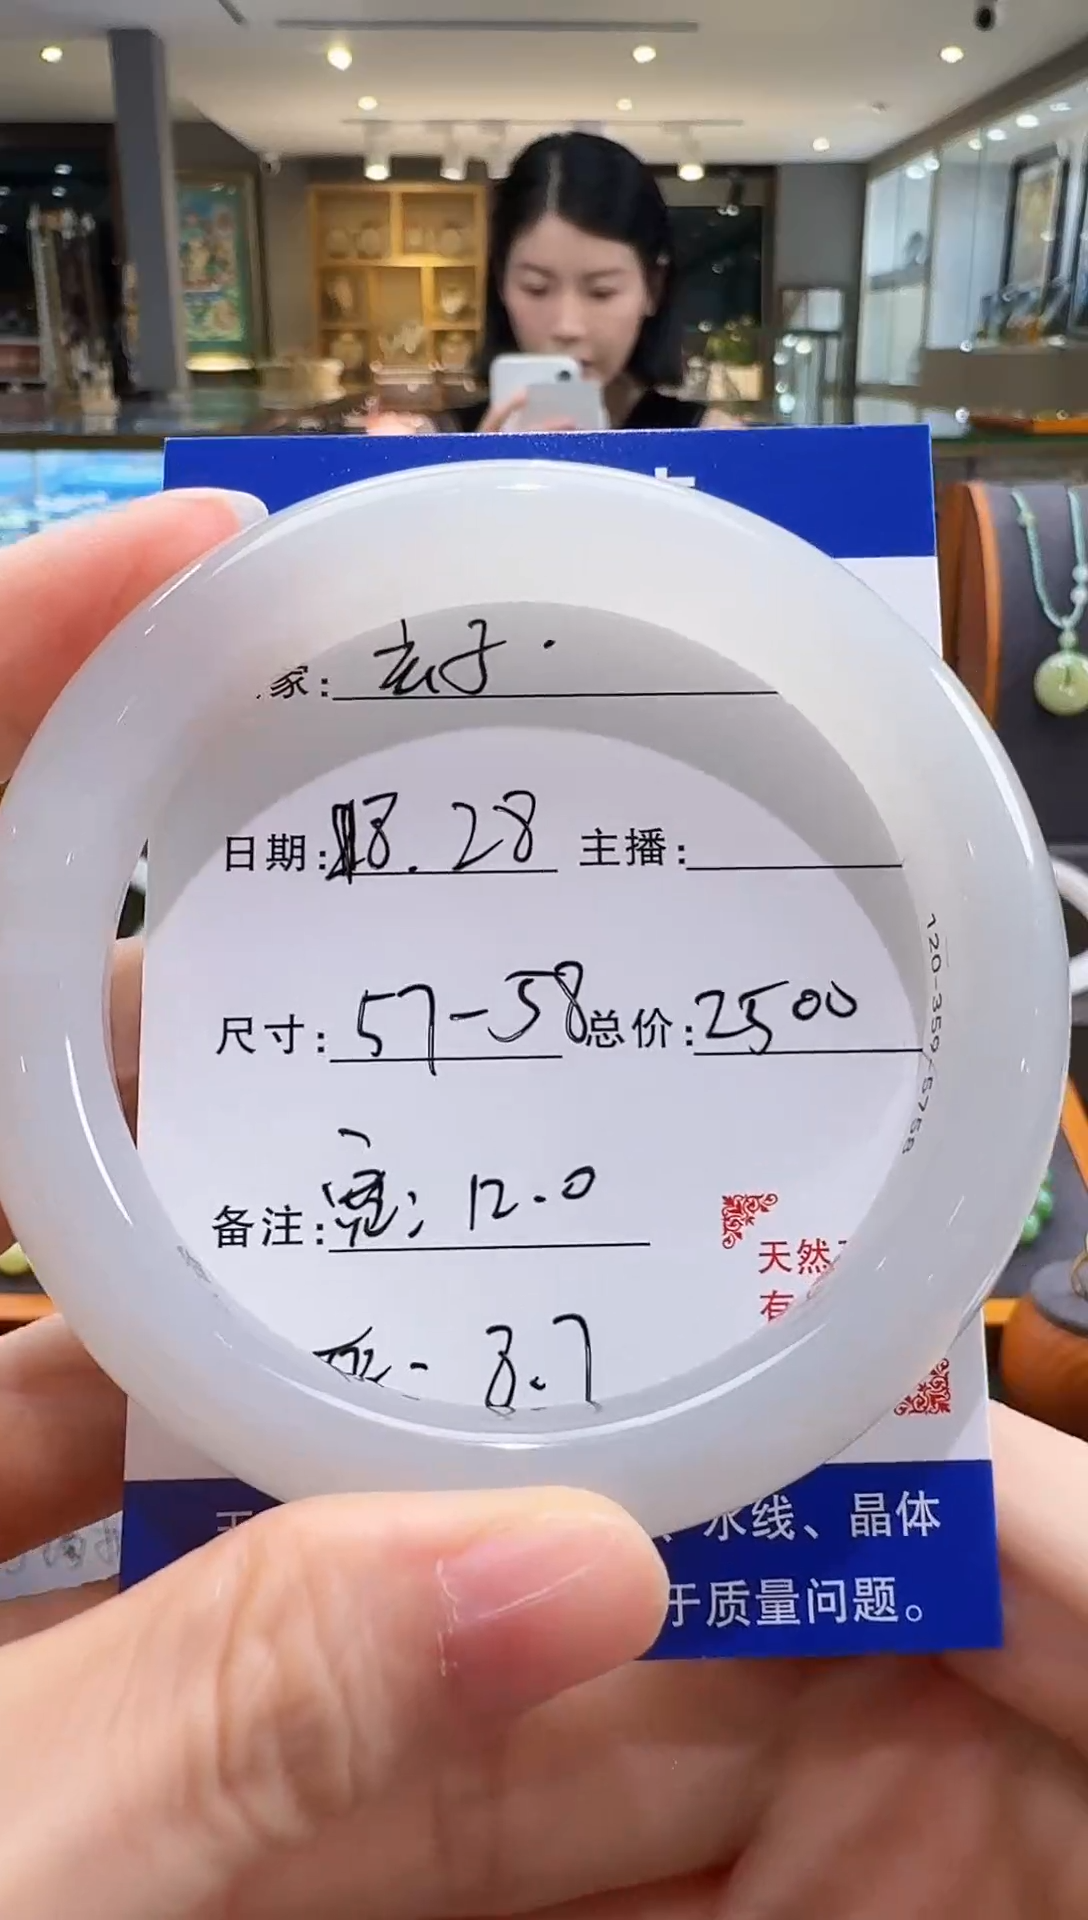 家: 玄子.
日期: 8.28 主播:
尺寸: 57-58 总价: 2500
120-359-5758
备注: 宽: 12.0
天然
有
8.7
水线、晶体
于质量问题。